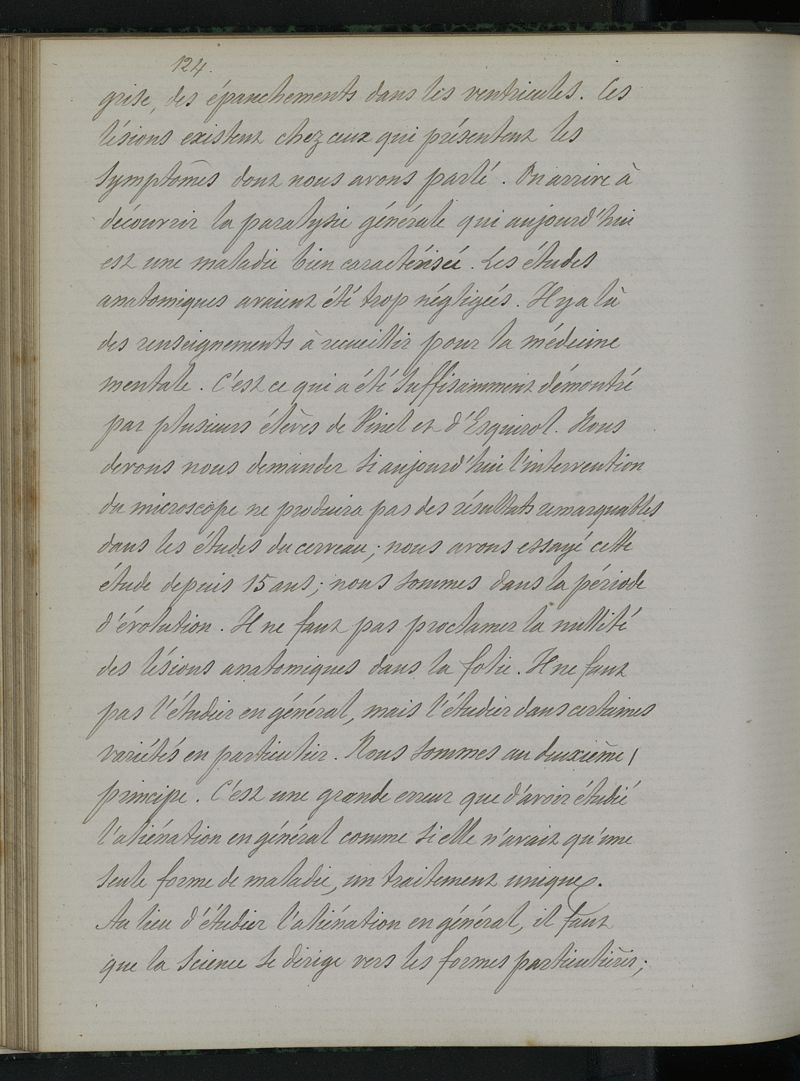 124.
grise, des épanchements dans les ventricules. Ces
lésions existent chez ceux qui présentent les
symptômes dont nous avons parlé. On arrive à
découvrir la paralysie générale qui aujourd'hui
est une maladie bien caractérisée. Les études
anatomiques avaient été trop négligées. Il y a là
des renseignements à recueillir pour la médecine
mentale. C'est ce qui a été suffisamment démontré
par plusieurs élèves de Pinel et d'Esquirol. Nous
devons nous demander si aujourd'hui l'intervention
du microscope ne produira pas des résultats remarquables
dans les études du cerveau; nous avons essayé cette
étude depuis 15 ans; nous sommes dans la période
d'évolution. Il ne faut pas proclamer la nullité
des lésions anatomiques dans la folie. Il ne faut
pas l'étudier en général, mais l'étudier dans certaines
variétés en particulier. Nous sommes au deuxième
principe. C'est une grande erreur que d'avoir étudié
l'aliénation en général comme si elle n'avait qu'une
seule forme de maladie, un traitement unique.
Au lieu d'étudier l'aliénation en général, il faut
que la science se dirige vers les formes particulières;